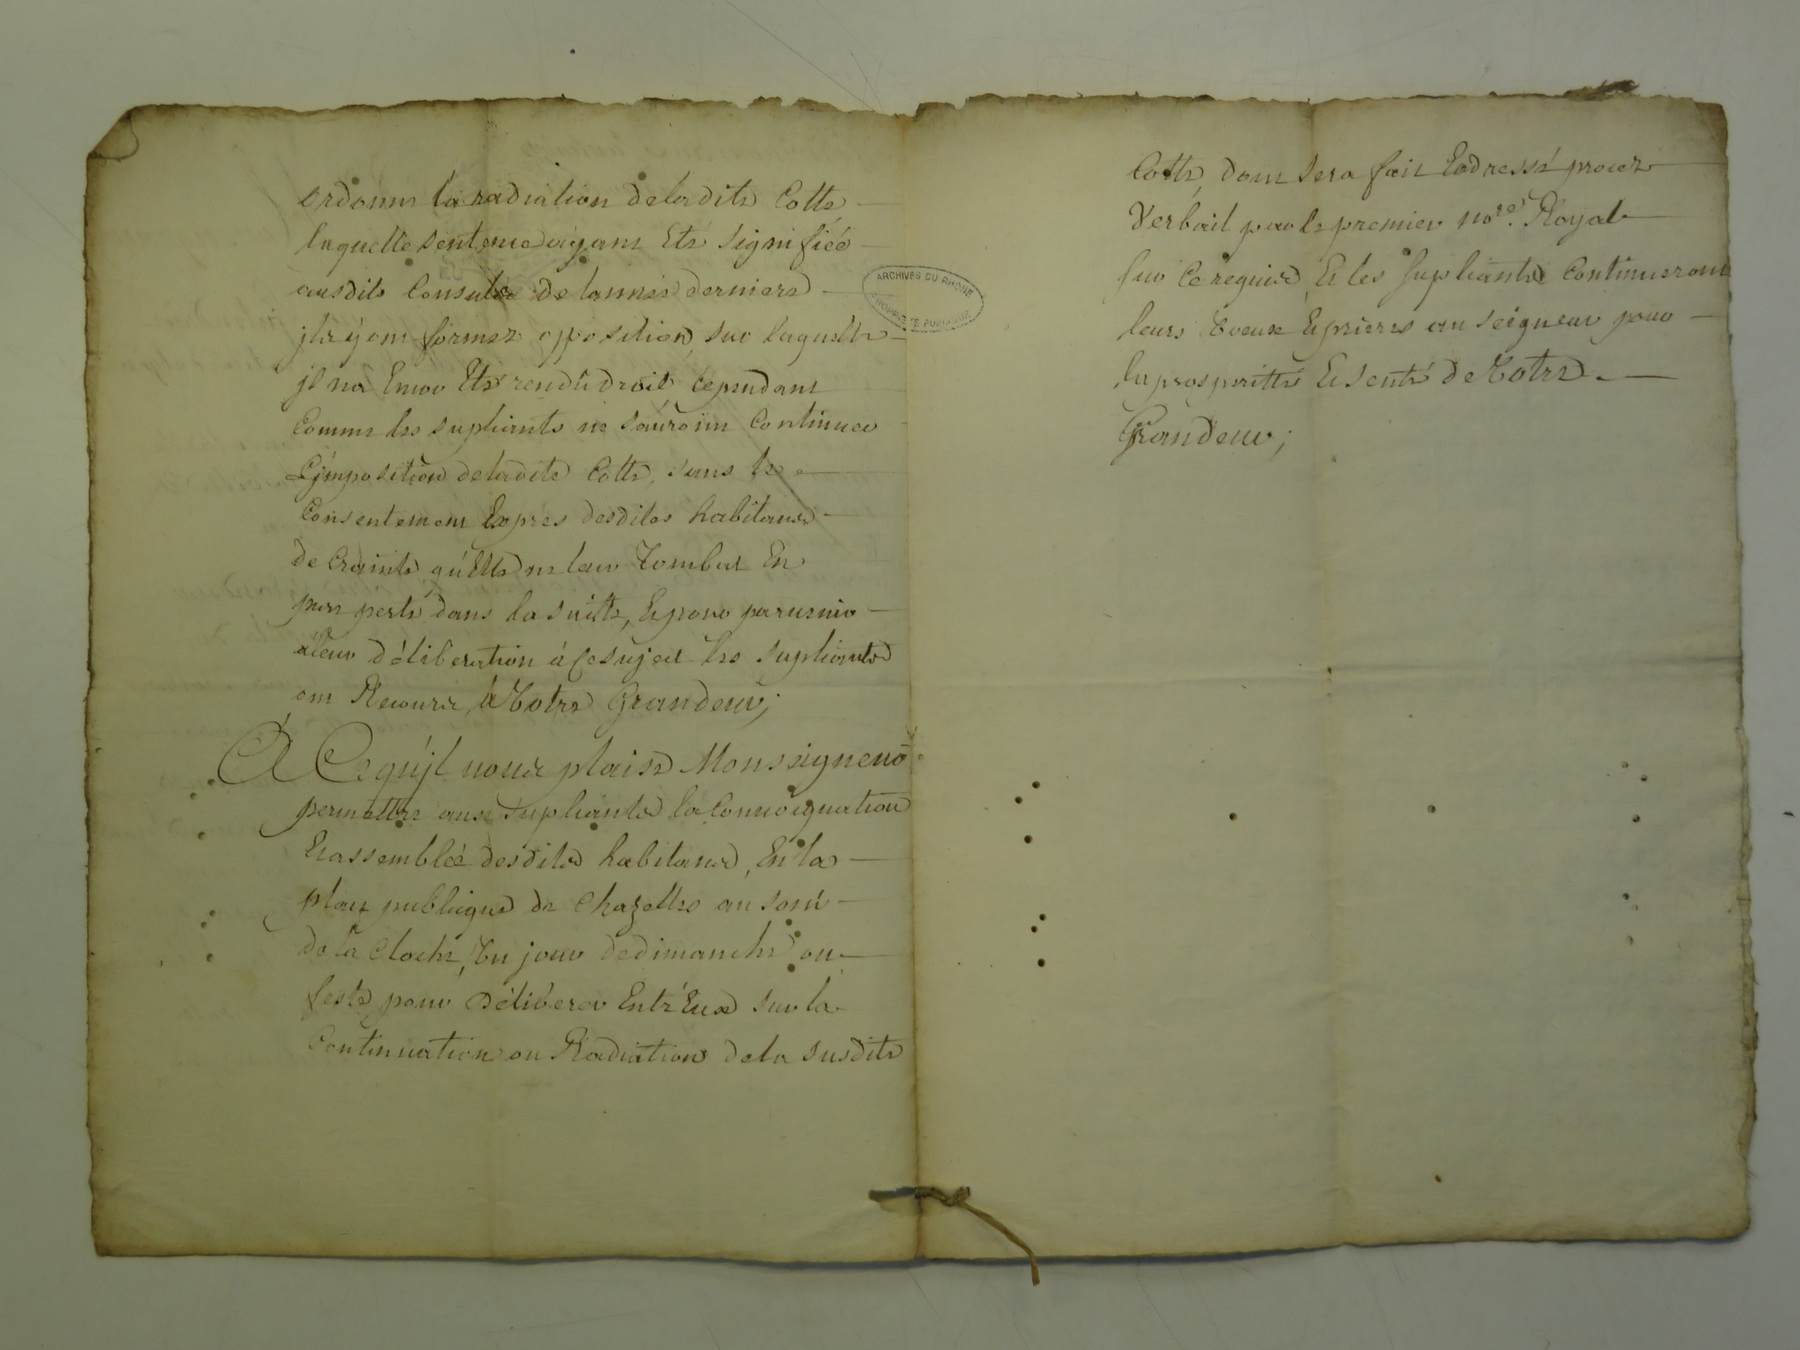 ordonne la radiation deladite Cotte
laquelle sentence ayant Eté signifiée
ausdits Consuls de lannée derniere
jls y ont formez opposition, sur laquelle
jl na Encor Eté rendû droit, Cependant
Comme les supliants ne sauroint Continuer
L'jmposition deladite Cotte, sans le
Consentement Expres desdites habitans
de Crainte qu'Elle ne leur Tombat En
pure perte dans la suitte, Et pour parvenir
aleur déliberation à Ce sujet les supliants
ont Recours, à Votre Grandeur;
A Ce qu'jl vous plaise Monseigneur
permettre aux supliants la Convoquation
Et assemblée desdits habitans, En la
place publique de Chazelles au son
de la Cloche, Vn jour de dimanche ou
feste pour déliberer Entr'Eux sur la
Continuation ou Radiation de la susdite
Cotte, dont sera fait Et dressé procez
Verbail par le premier nore. Royal
sur Ce requis, Et les supliants Continueront
leurs Voeux Et prieres au seigneur pour
la prosperitté Et senté de Votre
Grandeur;
ARCHIVES DU RHONE